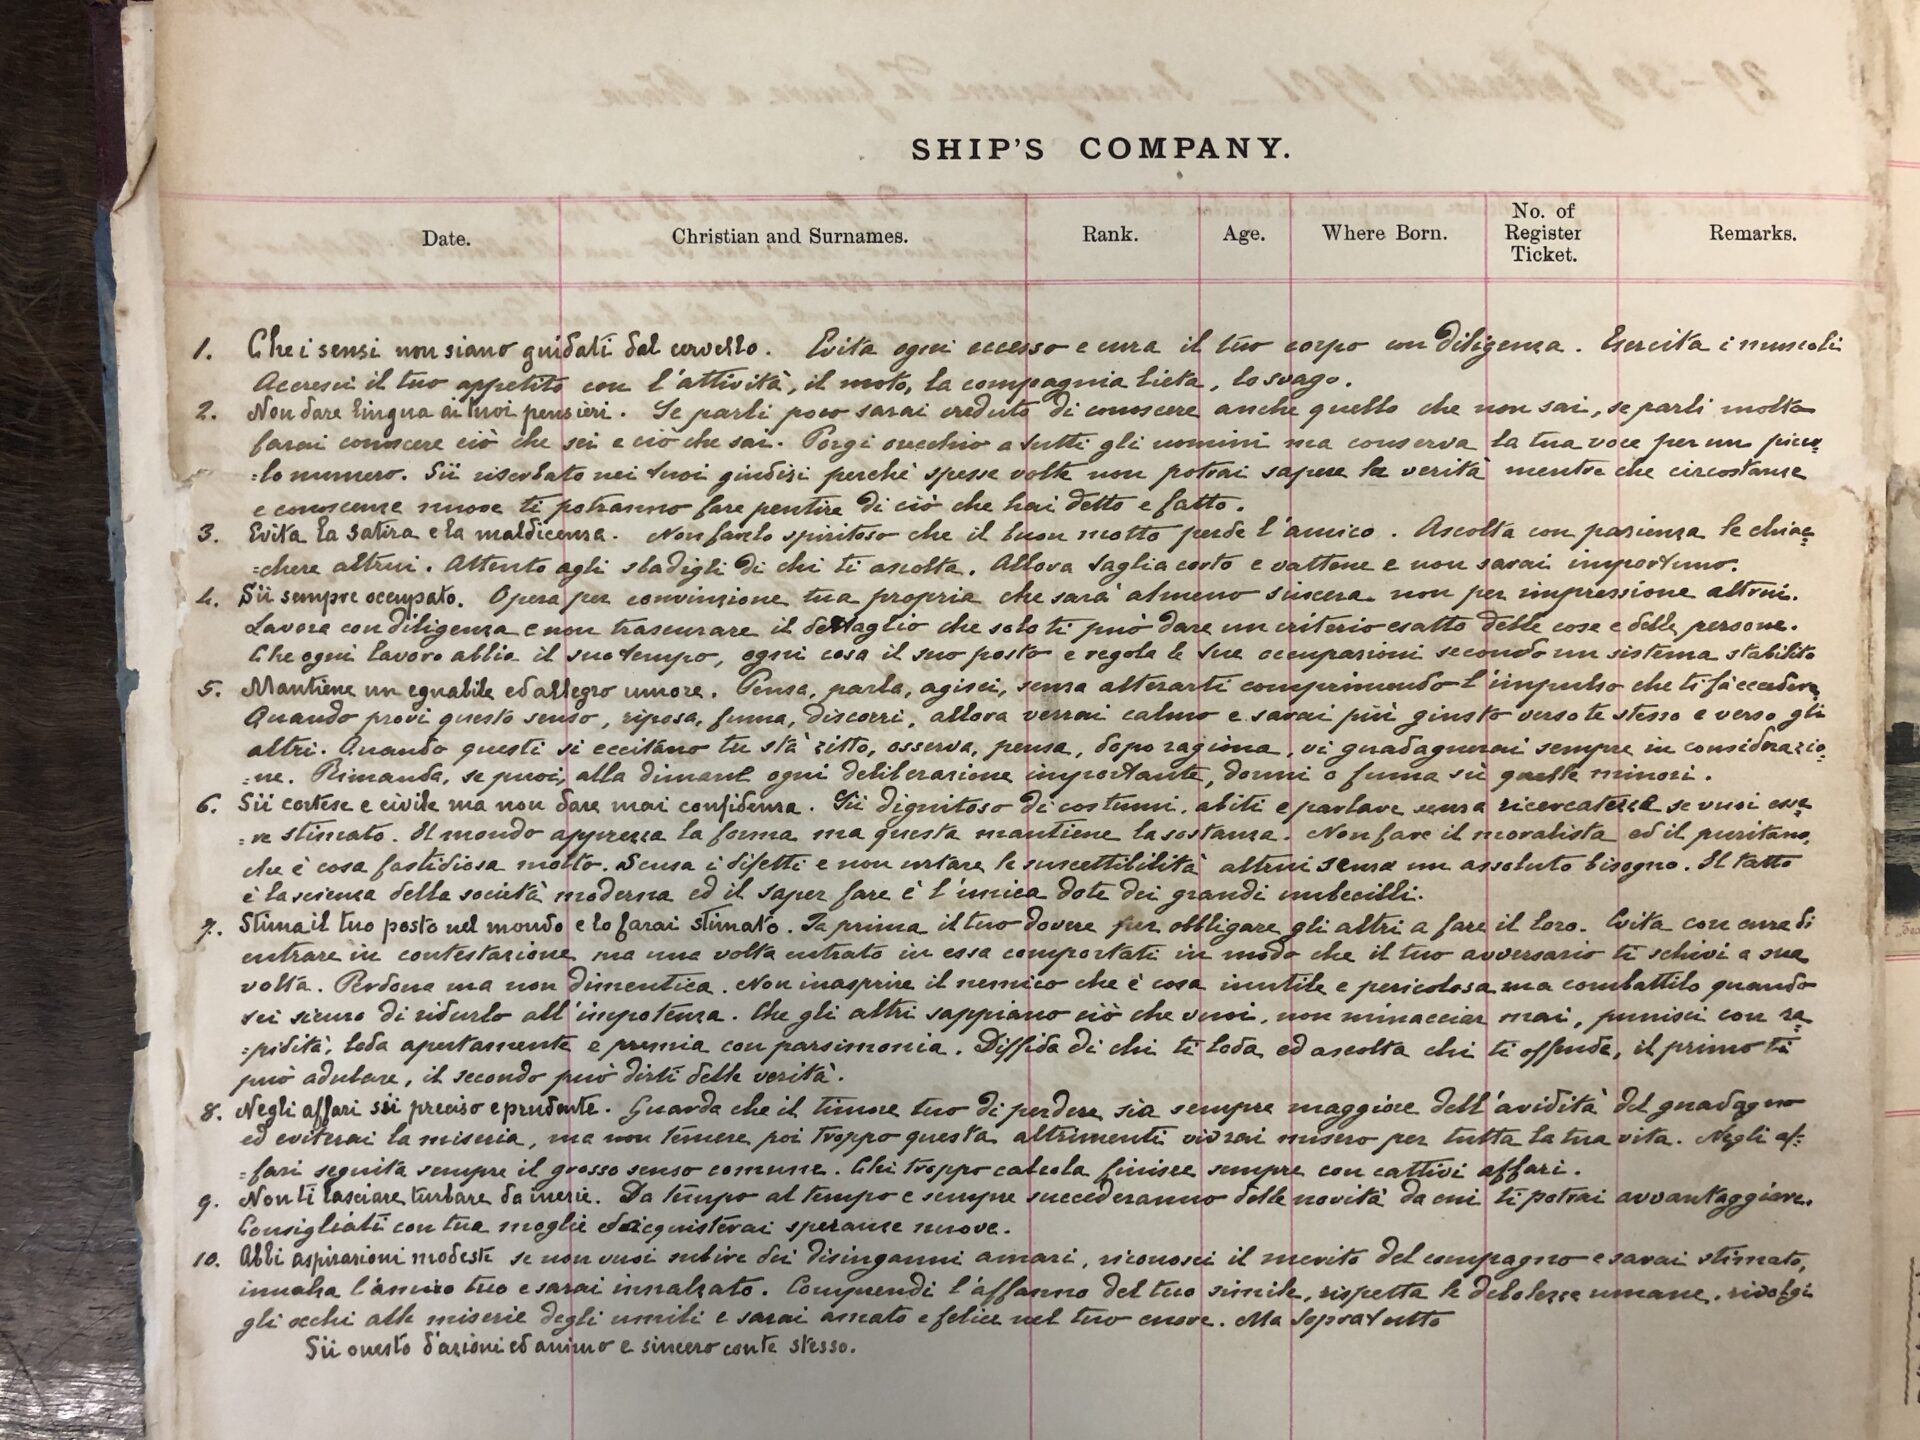 SHIP'S COMPANY.
Date. Christian and Surnames. Rank. Age. Where Born. No. of Register Ticket. Remarks.
1. Che i sensi non siano guidati dal cervello. Evita ogni eccesso e cura il tuo corpo con diligenza. Esercita i muscoli
Accresci il tuo appetito con l'attività, il moto, la compagnia lieta, lo svago.
2. Non dare lingua ai tuoi pensieri. Se parli poco sarai creduto di conoscere anche quello che non sai, se parli molto
farai conoscere ciò che sei e ciò che sai. Porgi orecchio a tutti gli uomini ma conserva la tua voce per un picco=
=lo numero. Sii riserbato nei tuoi giudizi perchè spesse volte non potrai sapere la verità mentre che circostanze
e conoscenze nuove ti potranno fare pentire di ciò che hai detto e fatto.
3. Evita la satira e la maldicenza. Non farlo spiritoso che il buon motto perde l'amico. Ascolta con pazienza le chiac=
=chere altrui. Attento agli sbadigli di chi ti ascolta. Allora taglia corto e vattene e non sarai importuno.
4. Sii sempre occupato. Opera per convinzione tua propria che sarà almeno sincera non per impressione altrui.
Lavora con diligenza e non trascurare il dettaglio che solo ti può dare un criterio esatto delle cose e delle persone.
Che ogni lavoro abbia il suo tempo, ogni cosa il suo posto e regola le tue occupazioni secondo un sistema stabilito
5. Mantiene un eguabile ed allegro umore. Pensa, parla, agisci, senza alterarti comprimendo l'impulso che ti fà eccedere
Quando provi questo senso, riposa, fuma, discorri, allora verrai calmo e sarai più giusto verso te stesso e verso gli
altri. Quando questi si eccitano tu stà zitto, osserva, pensa, dopo ragiona, vi guadagnerai sempre in considerazio=
=ne. Rimanda, se puoi, alla dimane ogni deliberazione importante, dormi o fuma su quelle minori.
6. Sii cortese e civile ma non dare mai confidenza. Sii dignitoso di costumi, abiti e parlare senza ricercatezza se vuoi esse=
=re stimato. Il mondo apprezza la forma ma questa mantiene la sostanza. Non fare il moralista ed il puritano,
che è cosa fastidiosa molto. Scusa i difetti e non urtare le suscettibilità altrui senza un assoluto bisogno. Il tatto
è la scienza della società moderna ed il saper fare è l'unica dote dei grandi imbecilli.
7. Stima il tuo posto nel mondo e lo farai stimato. Fa prima il tuo dovere per obbligare gli altri a fare il loro. Evita con cura di
entrare in contestazione ma una volta entrato in essa comportati in modo che il tuo avversario ti schivi a sua
volta. Perdona ma non dimentica. Non inasprire il nemico che è cosa inutile e pericolosa ma combattilo quando
sei sicuro di ridurlo all'impotenza. Che gli altri sappiano ciò che vuoi, non minacciar mai, punisci con ra=
=pidità, loda apertamente e premia con parsimonia. Diffida di chi ti loda ed ascolta chi ti offende, il primo ti
può adulare, il secondo può dirti delle verità.
8. Negli affari sii preciso e prudente. Guarda che il timore tuo di perdere sia sempre maggiore dell'avidità del guadagno
ed eviterai la miseria, ma non temere poi troppo questa altrimenti vivrai misero per tutta la tua vita. Negli af=
=fari seguita sempre il grosso senso comune. Chi troppo calcola finisce sempre con cattivi affari.
9. Non ti lasciare turbare da inezie. Da tempo al tempo e sempre succederanno delle novità da cui ti potrai avvantaggiare.
Consigliati con tua moglie ed acquisterai speranze nuove.
10. Abbi aspirazioni modeste se non vuoi subire dei disinganni amari, riconosci il merito del compagno e sarai stimato,
innalza l'amico tuo e sarai innalzato. Comprendi l'affanno del tuo simile, rispetta le debolezze umane, rivolgi
gli occhi alle miserie degli umili e sarai amato e felice nel tuo cuore. Ma sopratutto
Sii onesto d'azioni ed animo e sincero con te stesso.